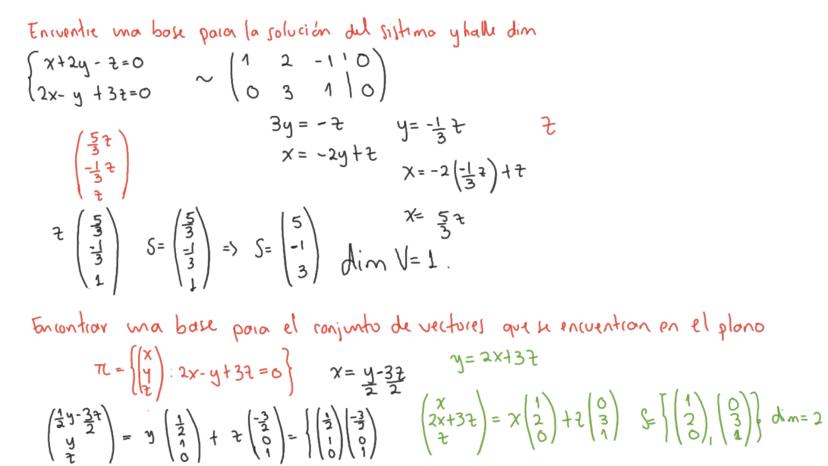 Encuentre una base para la solución del sistema y halle dim
{ x+2y-z=0
2x-y+3z=0 ~ ( 1 2 -1 | 0
0 3 1 | 0 )
3y = -z y = -1/3 z z
x = -2y+z x = -2(-1/3 z)+z
x = 5/3 z
( 5/3 z
-1/3 z
z )
z ( 5/3 -1/3 1 ) S= ( 5/3 -1/3 1 ) => S= ( 5 -1 3 ) dim V=1.
Encontrar una base para el conjunto de vectores que se encuentran en el plano
π = { ( x y z ) : 2x-y+3z=0 } x = y/2 - 3z/2 y=2x+3z
( 1/2 y - 3z/2 y z ) = y ( 1/2 1 0 ) + z ( -3/2 0 1 ) = { ( 1/2 1 0 ) ( -3/2 0 1 )
( x 2x+3z z ) = x ( 1 2 0 ) + z ( 0 3 1 ) S= { ( 1 2 0 ) , ( 0 3 1 ) } dim=2